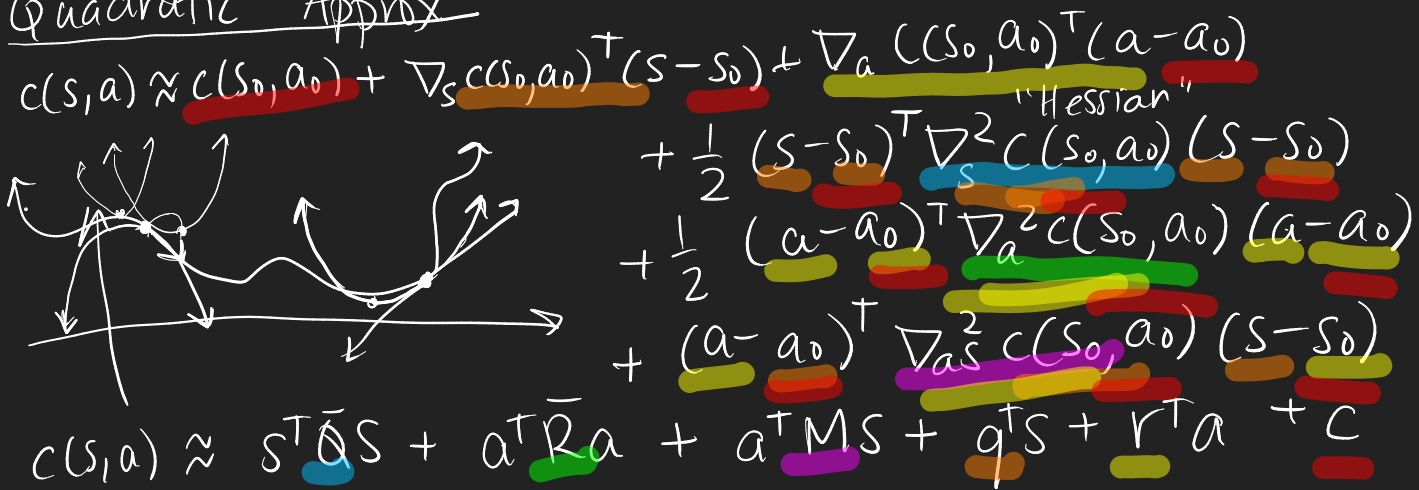 Quadratic Approx
c(s,a) ≈ c(s₀,a₀) + ∇ₛc(s₀,a₀)ᵀ(s-s₀) + ∇ₐ c(s₀,a₀)ᵀ(a-a₀)
"Hessian"
+ 1/2 (s-s₀)ᵀ ∇ₛ² c(s₀,a₀) (s-s₀)
+ 1/2 (a-a₀)ᵀ ∇ₐ² c(s₀,a₀) (a-a₀)
+ (a-a₀)ᵀ ∇ₐₛ² c(s₀,a₀) (s-s₀)
c(s,a) ≈ sᵀQ̄s + aᵀR̄a + aᵀMs + qᵀs + rᵀa + c